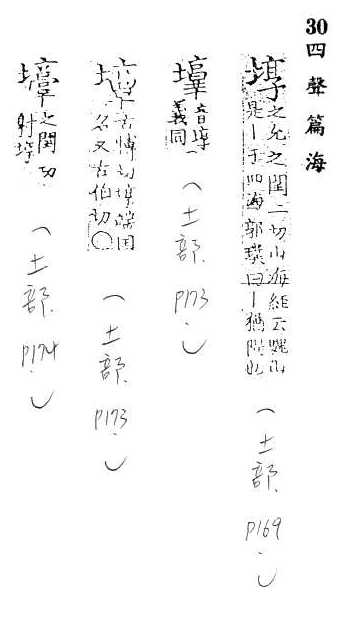 30四聲篇海
埻 之允之閏二切山海經云騩山
是｜于西海郭璞曰｜猶隄也
(土部 P169.)
音埻
義同
(土部 P173.)
古博切埻端国
名又古伯切〇
(土部 P173.)
之閏切
射埻
(土部 P174.)